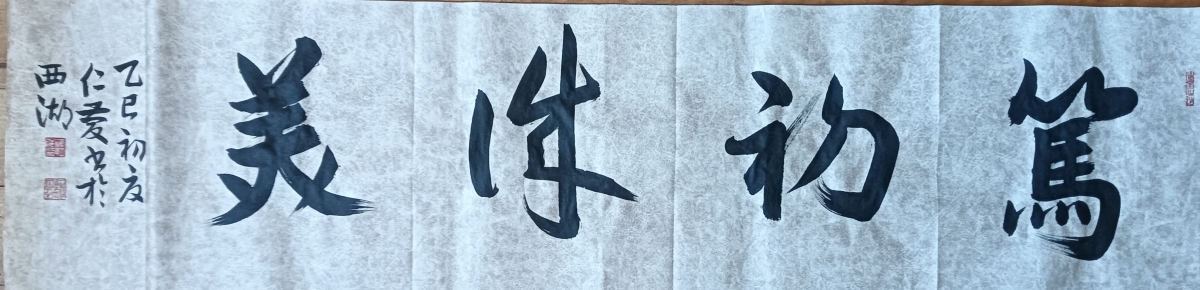 篤初誠美
乙巳初夏
仁愛書於
西湖